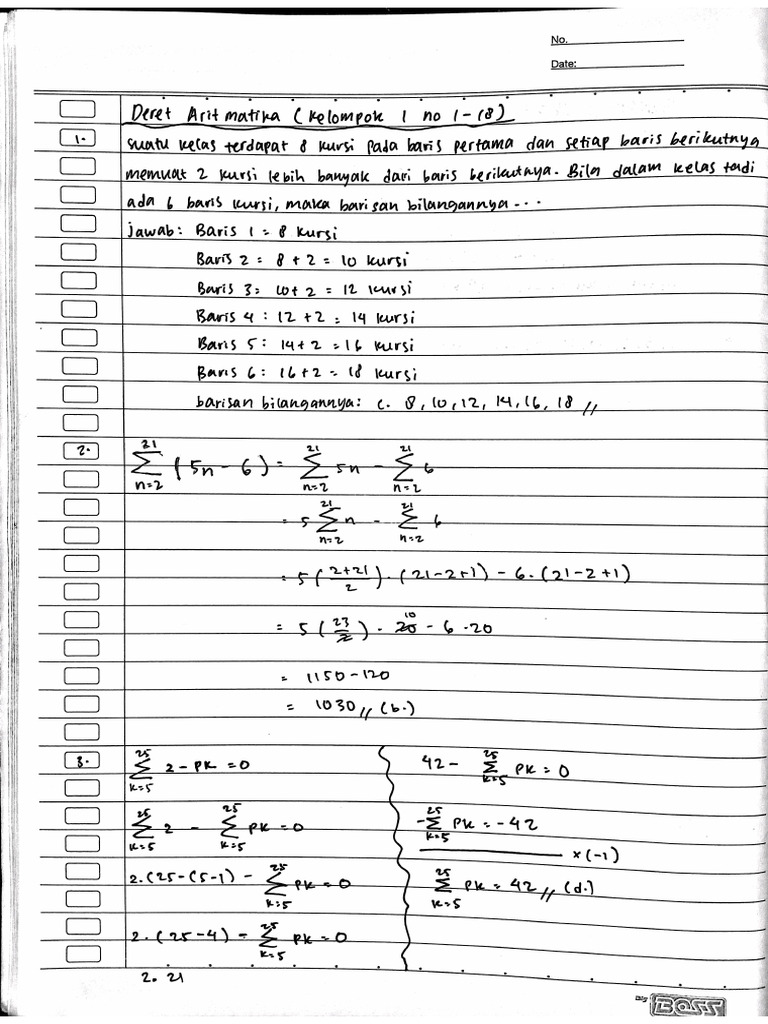 No.
Date:
Deret Aritmatika (Kelompok 1 no 1-18)
1. Suatu kelas terdapat 8 kursi pada baris pertama dan setiap baris berikutnya
memuat 2 kursi lebih banyak dari baris berikutnya. Bila dalam kelas tadi
ada 6 baris kursi, maka barisan bilangannya...
Jawab: Baris 1 = 8 kursi
Baris 2 = 8 + 2 = 10 kursi
Baris 3: 10 + 2 = 12 kursi
Baris 4 : 12 + 2 = 14 kursi
Baris 5 : 14 + 2 = 16 kursi
Baris 6 : 16 + 2 = 18 kursi
barisan bilangannya: c. 8, 10, 12, 14, 16, 18 //
2. ∑_{n=2}^{21} (5n - 6) = ∑_{n=2}^{21} 5n - ∑_{n=2}^{21} 6
= 5 ∑_{n=2}^{21} n - ∑_{n=2}^{21} 6
= 5 ((2+21)/2) . (21-2+1) - 6. (21-2+1)
= 5 (23/2) . 20 10 - 6 . 20
= 1150 - 120
= 1030 // (b.)
3. ∑_{k=5}^{25} 2 - pk = 0
∑_{k=5}^{25} 2 - ∑_{k=5}^{25} pk = 0
2. (25-(5-1) - ∑_{k=5}^{25} pk = 0
2. (25-4) - ∑_{k=5}^{25} pk = 0
2. 21
42 - ∑_{k=5}^{25} pk = 0
-∑_{k=5}^{25} pk = -42
x (-1)
∑_{k=5}^{25} pk = 42 // (d.)
BOSS